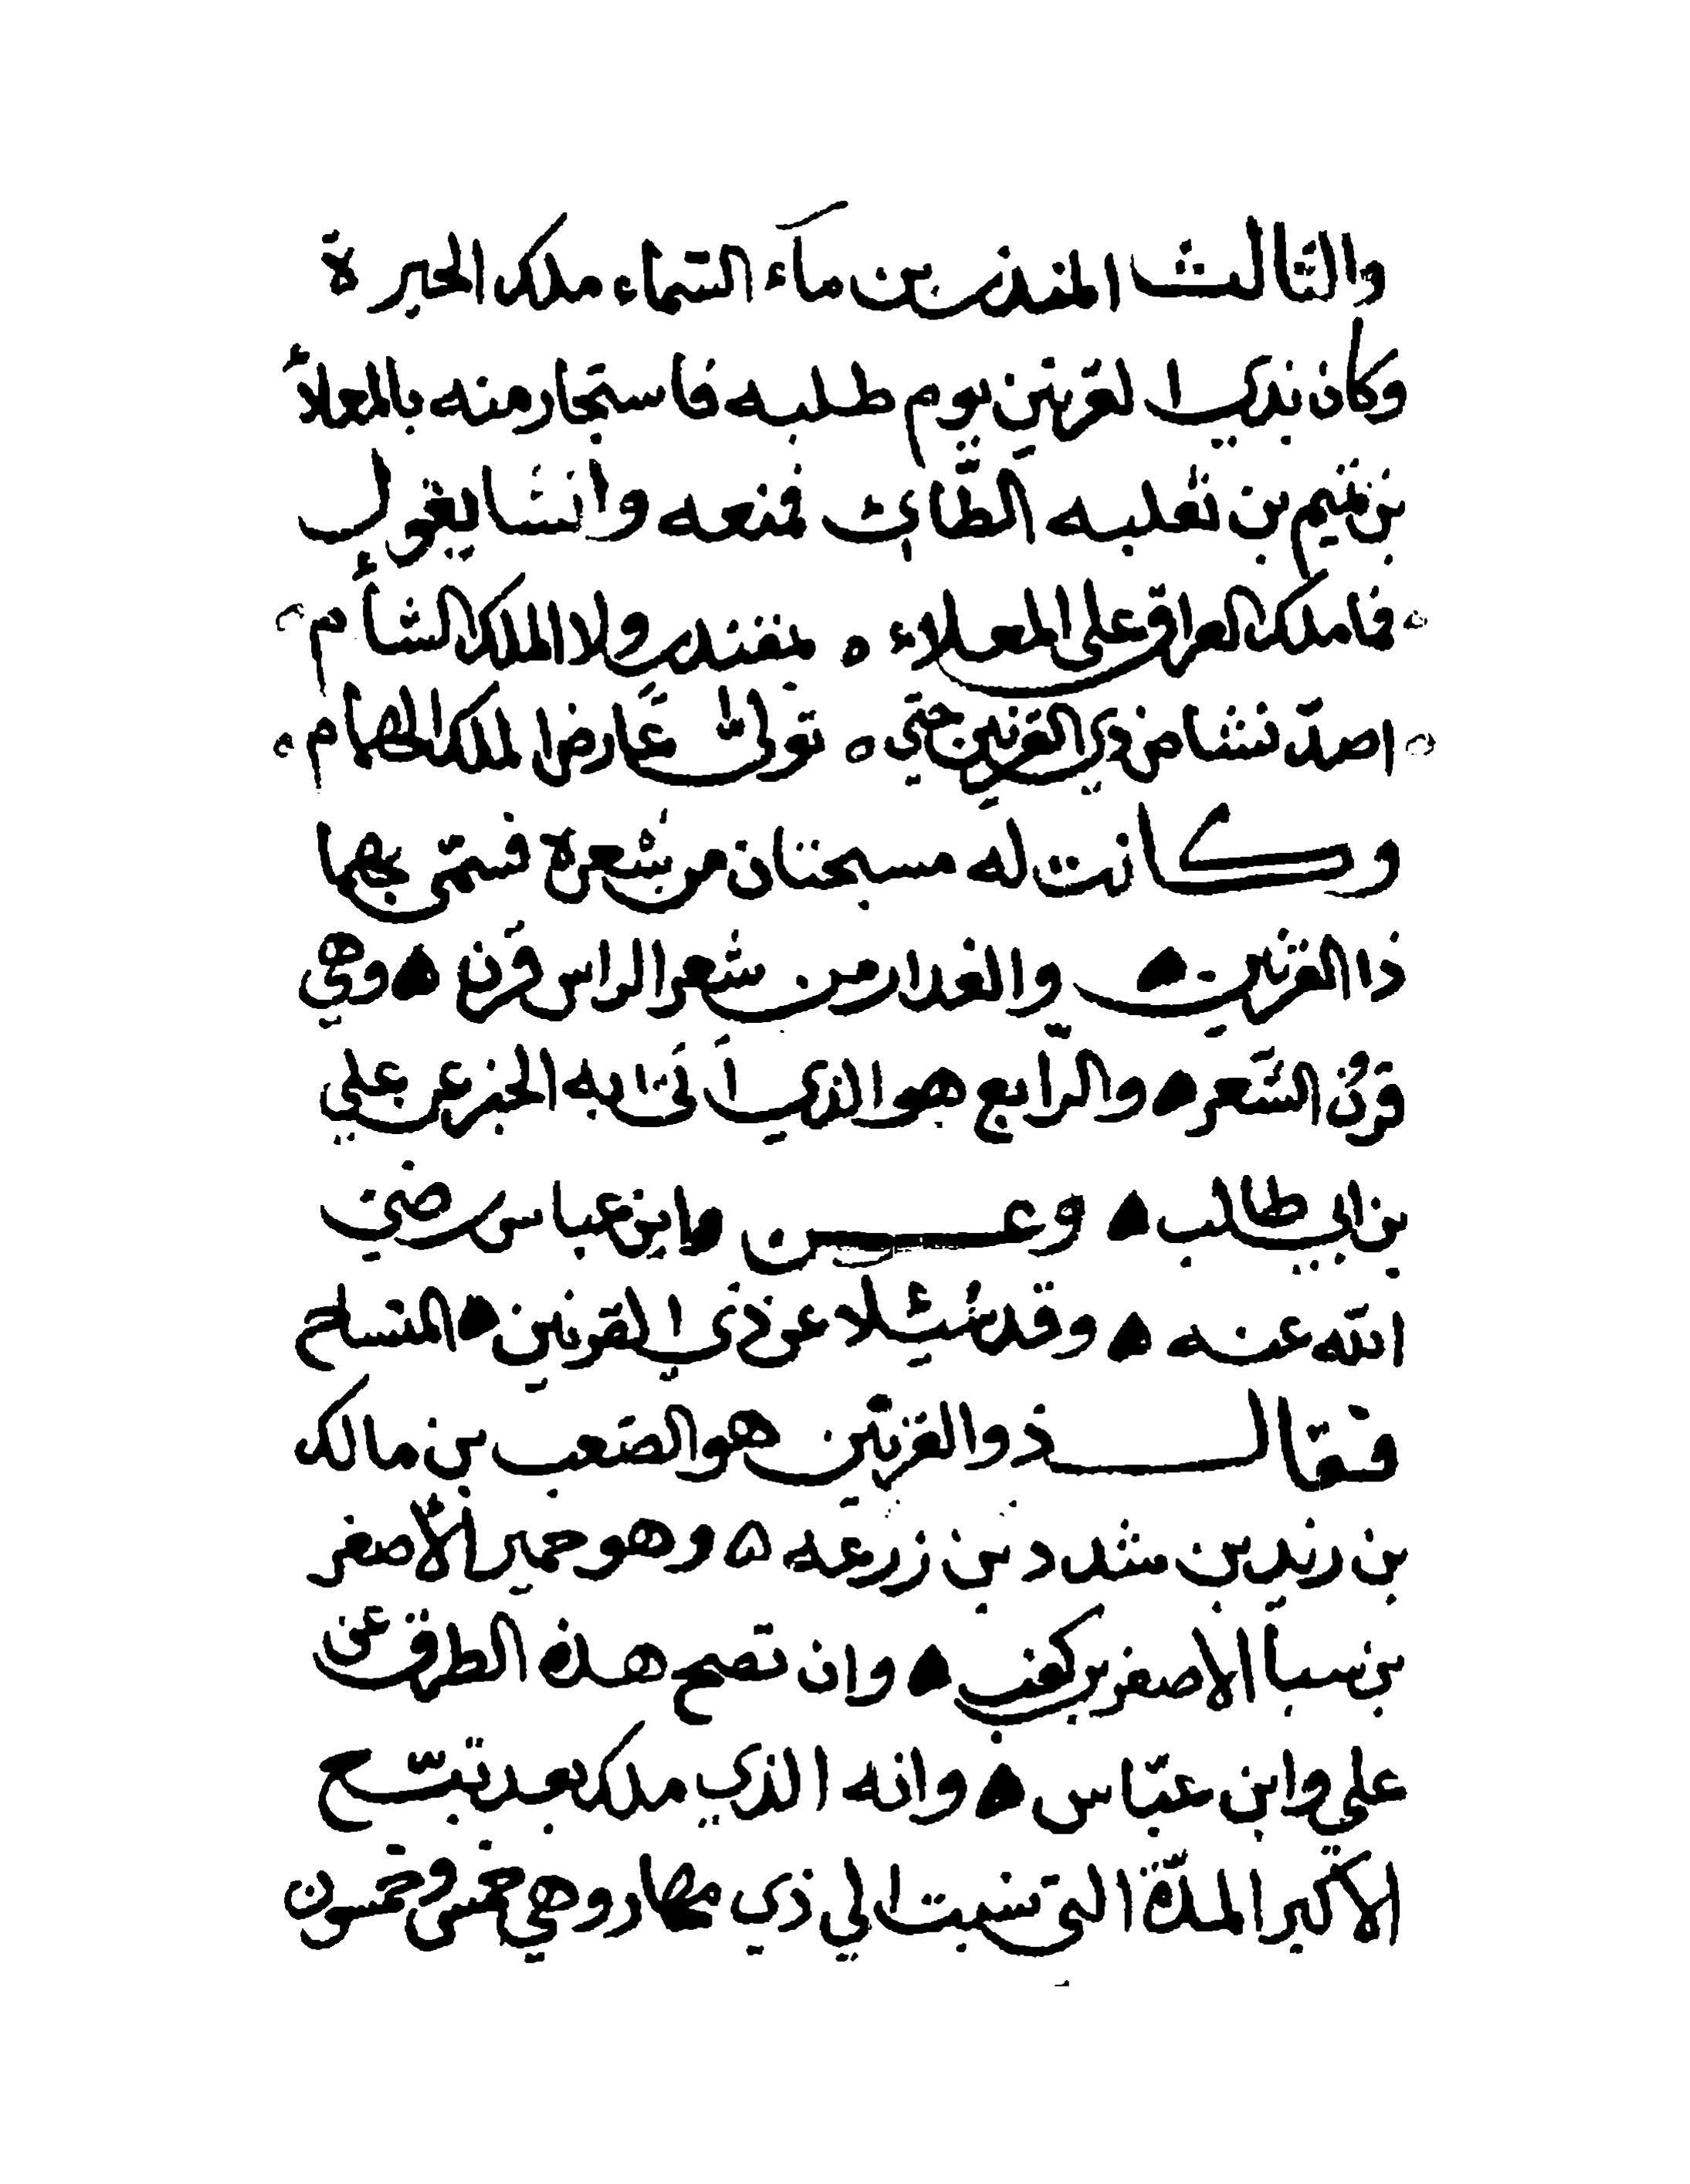 والثالث المنذر بن مآء السّماء ملك الحيرة
وكان بذي القرنين يوم طلبه فاستجار منه بالمعلاّ
بن تيم بن ثعلبه الطّائ فمنعه وانشا يقول
فما ملك العراق على المعلاء ه بمقتدر ولا الملك الشام
اصدّ نشاص ذي القرنين حتي ه تولىّ عَارض الملك الهمام
وكانت له مسبحتان من شعره فسمّى بهما
ذا القرنين والغدار من شعر الراس قرن وهي
قرنُ الشّعر والرّابع هو الذي اَتىَ به الخبر عن علي
بن ابي طالب وعن وابن عباس رضي
الله عنه وقد سُئِلا عن ذي القرنين المتساح
فقال ذو القرنين هو الصّعب بن مالك
بن زيد بن شدد بن زرعه ه وهو حمير الأصغر
بن سبأ الاصغر بن كعب وان تصح هذه الطرق عن
على وابن عبّاس وانه الذي ملك بعد تبّع
الاكبر المدّة التي نسبت الي ذي مهار وهي خمس وخمسون